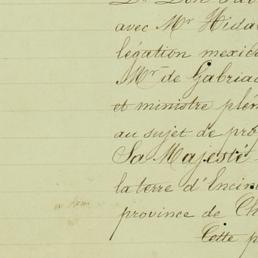 avec Mr Hida
légation mexic
Mr de Gabria
et ministre plén
au sujet de pro
Sa Majesté
la terre d'Encin
province de Ch
Cette p